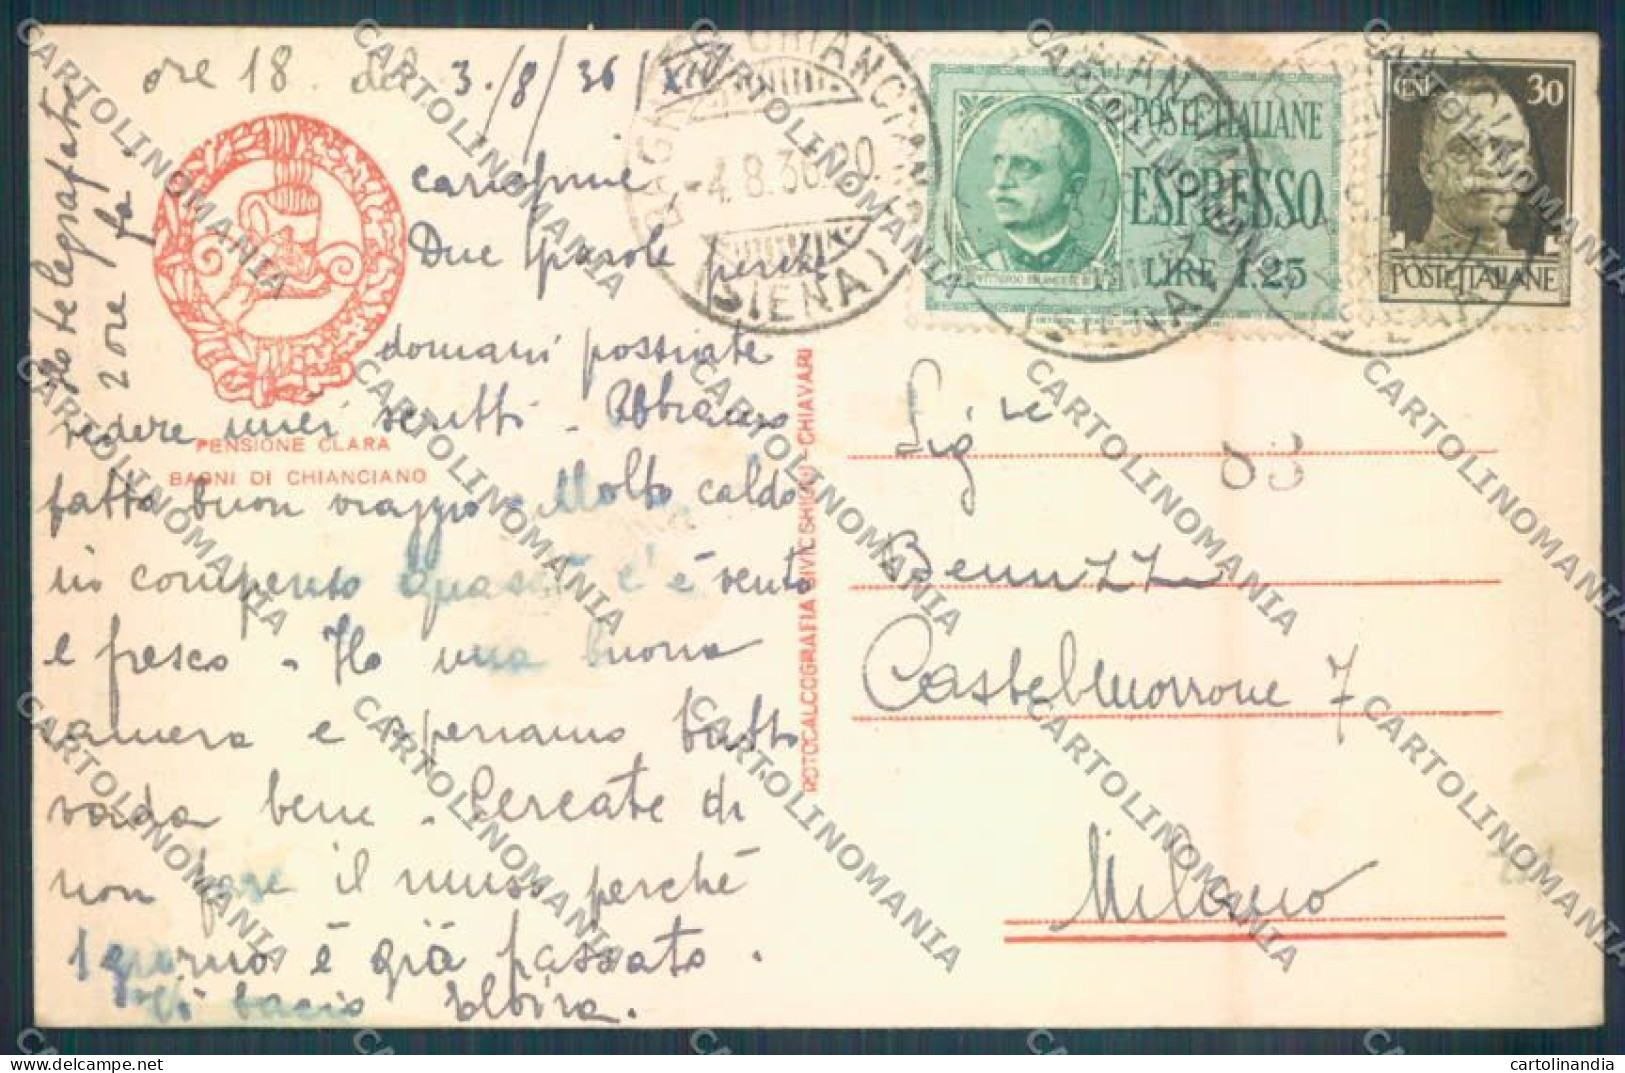 ore 18 del 3/8/36/XIV
Ho telegrafato
2 ore fa.
carissime
Due parole perché
domani possiate
vedere miei scritti. Abbiamo
fatto buon viaggio. Molto caldo
in compenso qua c'è vento
e fresco - Ho una buona
camera e speriamo tutto
vada bene. Cercate di
non fare il muso perché
1 giorno è già passato.
Vi bacio Elvira.
PENSIONE CLARA
BAGNI DI CHIANCIANO
ROTOCALCOGRAFIA CIVICCHIONI - CHIAVARI
BAGNI DI CHIANCIANO
-4.8.36.20
(SIENA)
POSTE ITALIANE
ESPRESSO
LIRE 1.25
CENT 30
POSTE ITALIANE
Sig.re
Benuzzi
Castelmorrone 7
Milano
CARTOLINOMANIA
cartolinandia